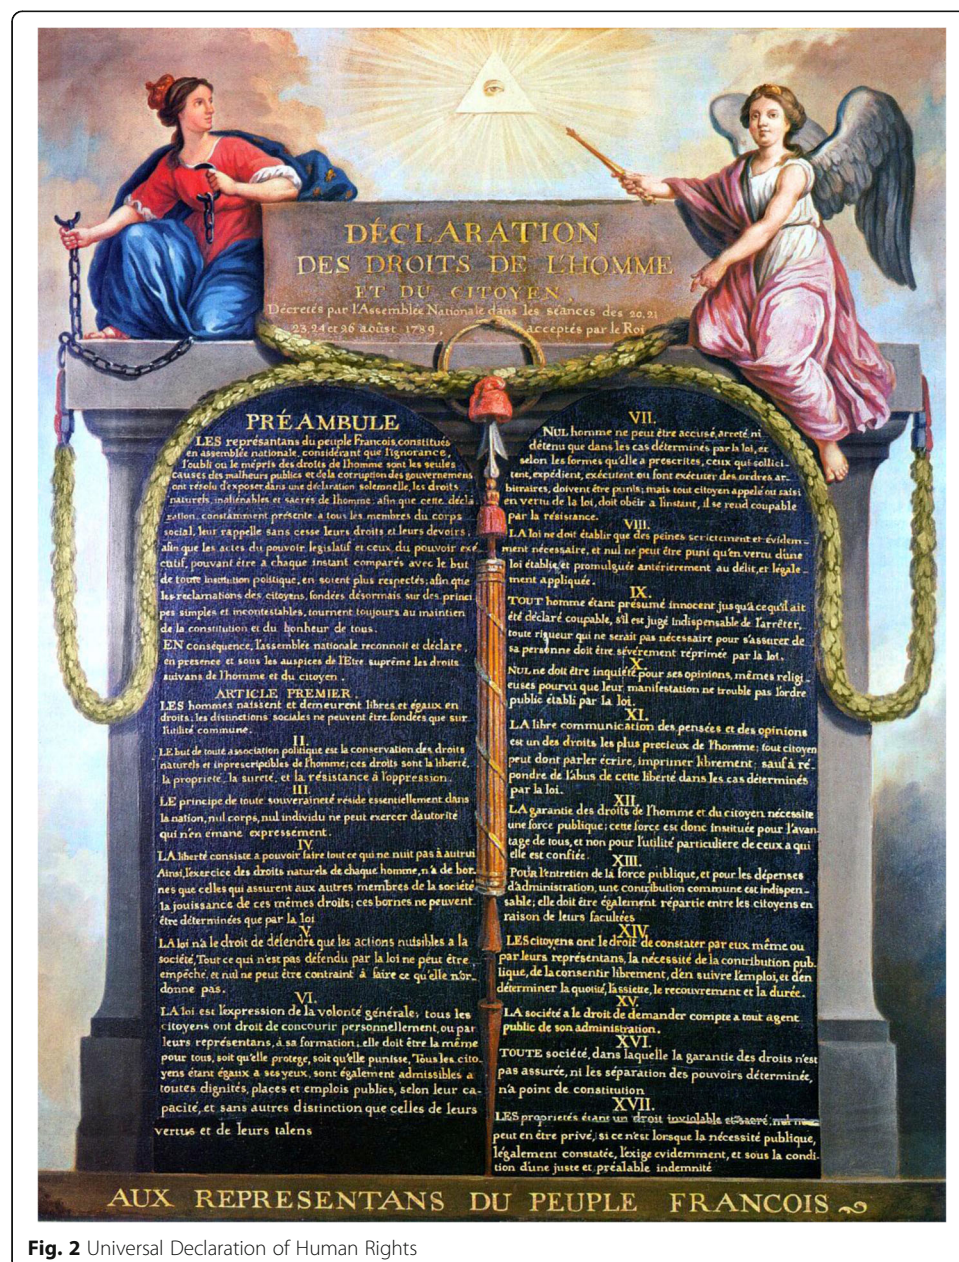 DÉCLARATION
DES DROITS DE L'HOMME
ET DU CITOYEN,
Décretés par l'Assemblée Nationale dans les séances des 20, 21
23, 24 et 26 aoûst 1789, acceptés par le Roi
PRÉAMBULE
LES représantans du peuple Francois, constitués
en assemblée nationale, considérant que l'ignorance,
l'oubli ou le mépris des droits de l'homme sont les seules
causes des malheurs publics et de la corruption des gouvernemens
ont résolu d'exposer dans une déclaration solemnelle, les droits
naturels, inaliénables et sacrés de l'homme; afin que cette décla
ration, constamment présente a tous les membres du corps
social, leur rappelle sans cesse leurs droits et leurs devoirs,
afin que les actes du pouvoir legislatif et ceux du pouvoir exé
cutif, pouvant être a chaque instant comparés avec le but
de toute institution politique, en soient plus respectés; afin que
les reclamations des citoyens, fondées désormais sur des princi
pes simples et incontestables, tournent toujours au maintien
de la constitution et du bonheur de tous.
EN conséquence, l'assemblée nationale reconnoit et déclare,
en presence et sous les auspices de l'Etre suprême les droits
suivans de l'homme et du citoyen.
ARTICLE PREMIER.
LES hommes naissent et demeurent libres et égaux en
droits; les distinctions sociales ne peuvent être fondées que sur
l'utilité commune.
II.
LE but de toute association politique est la conservation des droits
naturels et inprescripibles de l'homme; ces droits sont la liberté,
la propriete, la sureté, et la résistance à l'oppression.
III.
LE principe de toute souveraineté réside essentiellement dans
la nation, nul corps, nul individu ne peut exercer d'autorité
qui n'en émane expressement.
IV.
LA liberté consiste a pouvoir faire tout ce qui ne nuit pas à autrui
Ainsi, l'exercice des droits naturels de chaque homme, n'a de bor-
nes que celles qui assurent aux autres membres de la société
la jouissance de ces mêmes droits; ces bornes ne peuvent
être déterminées que par la loi
V.
LA loi n'a le droit de défendre que les actions nuisibles a la
société, Tout ce qui n'est pas défendu par la loi ne peut être
empêché, et nul ne peut être contraint à faire ce qu'elle n'or-
donne pas.
VI.
LA loi est l'expression de la volonté générale; tous les
citoyens ont droit de concourir personnellement, ou par
leurs représentans, à sa formation; elle doit être la même
pour tous, soit qu'elle protege, soit qu'elle punisse, Tous les cito-
yens étant égaux a ses yeux, sont également admissibles a
toutes dignités, places et emplois publics, selon leur ca-
pacité, et sans autres distinction que celles de leurs
vertus et de leurs talens
VII.
NUL homme ne peut être accusé, arreté ni
détenu que dans les cas déterminés par la loi, et
selon les formes qu'elle a prescrites, ceux qui sollici-
tent, expédient, exécutent ou font exécuter des ordres ar-
bitraires, doivent être punis; mais tout citoyen appelé ou saisi
en vertu de la loi, doit obéir a l'instant, il se rend coupable
par la résistance.
VIII.
LA loi ne doit établir que des peines strictement et évidem-
ment nécessaire, et nul ne peut être puni qu'en vertu d'une
loi établie et promulguée antérierement au délit, et légale-
ment appliquée.
IX.
TOUT homme étant présumé innocent jusqu'a ce qu'il ait
été déclaré coupable, s'il est jugé indispensable de l'arrêter,
toute rigueur qui ne serait pas nécessaire pour s'assurer de
sa personne doit être sévèrement réprimée par la loi.
X.
NUL ne doit être inquiété pour ses opinions, mêmes religi-
euses pourvi que leur manifestation ne trouble pas l'ordre
public établi par la loi.
XI.
LA libre communication des pensées et des opinions
est un des droits les plus precieux de l'homme; tout citoyen
peut dont parler écrire, imprimer librement; sauf a ré-
pondre de l'abus de cette liberté dans les cas déterminés
par la loi.
XII.
LA garantie des droits de l'homme et du citoyen nécessite
une force publique; cette force est donc instituée pour l'avan-
tage de tous, et non pour l'utilité particuliere de ceux a qui
elle est confiée.
XIII.
POUR l'entretien de la force publique, et pour les dépenses
d'administration, une contribution commune est indispen-
sable; elle doit être également répartie entre les citoyens en
raison de leurs facultées
XIV.
LES citoyens ont le droit de constater par eux même ou
par leurs représentans, la nécessité de la contribution pub-
lique, de la consentir librement, d'en suivre l'emploi, et d'en
déterminer la quotité, l'assiette, le recouvrement et la durée.
XV.
LA société a le droit de demander compte a tout agent
public de son administration.
XVI.
TOUTE société, dans laquelle la garantie des droits n'est
pas assurée, ni les séparation des pouvoirs déterminée,
n'a point de constitution
XVII.
LES proprietés étant un droit inviolable et sacré, nul ne
peut en être privé; si ce n'est lorsque la nécessité publique,
légalement constatée, l'exige evidemment, et sous la condi-
tion d'une juste et préalable indemnité
AUX REPRESENTANS DU PEUPLE FRANCOIS
Fig. 2 Universal Declaration of Human Rights